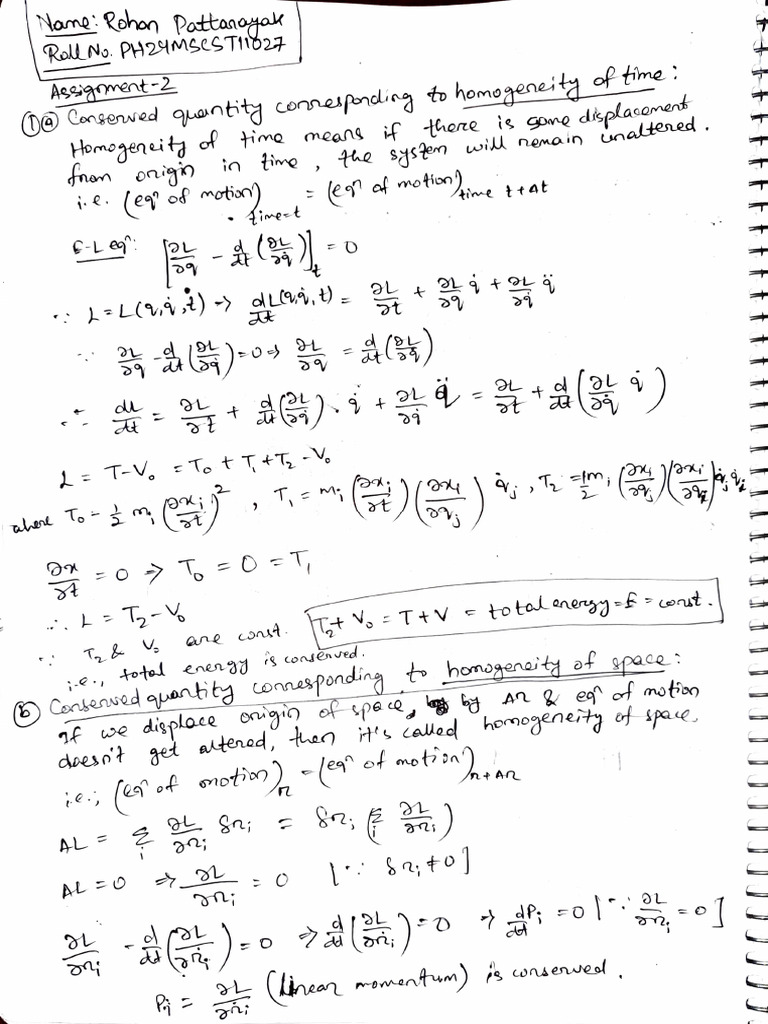 Name: Rohan Pattanayak
Roll No. PH24MSCST11027
Assignment-2
① ⓐ Conserved quantity corresponding to homogeneity of time:
Homogeneity of time means if there is some displacement
from origin in time, the system will remain unaltered.
i.e. (eqⁿ of motion)_{time=t} = (eqⁿ of motion)_{time t+Δt}
E-L eqⁿ: [∂L/∂q - d/dt (∂L/∂q̇)]_t = 0
∵ L = L(q, q̇, t) → dL(q, q̇, t)/dt = ∂L/∂t + ∂L/∂q q̇ + ∂L/∂q̇ q̈
∵ ∂L/∂q - d/dt (∂L/∂q̇) = 0 ⇒ ∂L/∂q = d/dt (∂L/∂q̇)
∴ dL/dt = ∂L/∂t + d/dt (∂L/∂q̇) · q̇ + ∂L/∂q̇ q̈ = ∂L/∂t + d/dt (∂L/∂q̇ q̇)
L = T - V₀ = T₀ + T₁ + T₂ - V₀
where T₀ = 1/2 m_i (∂x_i/∂t)², T₁ = m_i (∂x_i/∂t) (∂x_i/∂q_j) q̇_j, T₂ = 1/2 m_i (∂x_i/∂q_j) (∂x_i/∂q_k) q̇_j q̇_k
∂x/∂t = 0 ⇒ T₀ = 0 = T₁
∴ L = T₂ - V₀
∵ T₂ & V₀ are const. T₂ + V₀ = T + V = total energy = E = const.
i.e., total energy is conserved.
ⓑ Conserved quantity corresponding to homogeneity of space:
If we displace origin of space, by Δr & eqⁿ of motion
doesn't get altered, then it's called homogeneity of space.
i.e.; (eqⁿ of motion)_r = (eqⁿ of motion)_{r+Δr}
ΔL = Σ_i ∂L/∂r_i δr_i = δr_i (Σ_i ∂L/∂r_i)
ΔL = 0 ⇒ ∂L/∂r_i = 0 [∵ δr_i ≠ 0]
∂L/∂r_i - d/dt (∂L/∂ṙ_i) = 0 ⇒ d/dt (∂L/∂ṙ_i) = 0 ⇒ dP_i/dt = 0 [∵ ∂L/∂r_i = 0]
P_i = ∂L/∂ṙ_i (linear momentum) is conserved.